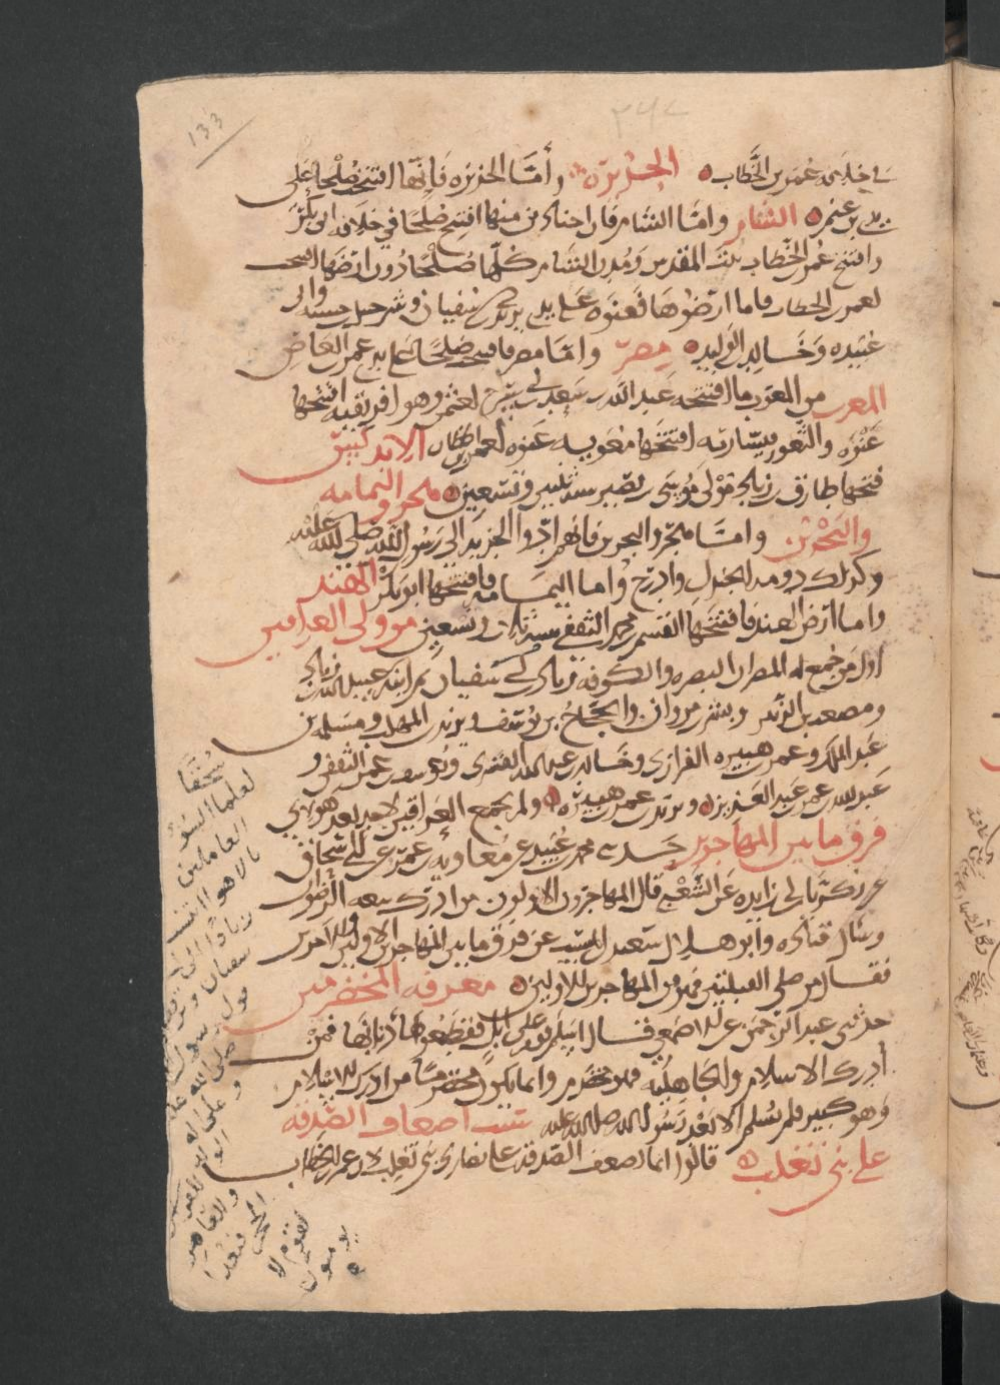 133
٢٦٧
في خلافة عمر بن الخطاب الجزيرة وأما الجزيرة فانها افتتحت صلحا على
يدي بن غنم الشام واما الشام فان اجنادين منها افتتح صلحا في خلافة ابي بكر
وافتتح عمر بن الخطاب بيت المقدس ومدن الشام كلها صلحا دون ارضها افتتحت
لعمر بن الخطاب فاما ارضوها فعنوة على يدي يزيد بن ابي سفيان وشرحبيل بن حسنة وابي
عبيدة وخالد بن الوليد مصر واما مصر فافتتحت صلحا على يد عمرو بن العاص
المغرب من المغرب ما افتتحه عبد الله بن سعد بن ابي سرح لعثمن وهو افريقية افتتحها
عنوة والثغور قيسارية افتتحها معوية عنوة لعمر بن الخطاب الاندلس
فتحها طارق بن زياد مولى موسى بن نصير سنة ثنتين وتسعين هجر واليمامه
والبحرين واما هجر والبحرين فانهم ادوا الجزية الى رسول الله صلى الله عليه
وكذلك دومة الجندل واذرح واما اليمامة فافتتحها ابو بكر الهند
واما ارض الهند فافتتحها القسم بن محمد الثقفي سنة ثلث وتسعين من ولي العراقين
اول من جمع له المصران البصرة والكوفة زياد بن ابي سفيان ثم ابنه عبيد الله بن زياد
ومصعب بن الزبير وبشر بن مروان والحجاج بن يوسف ويزيد بن المهلب ومسلمة بن
عبد الملك وعمر بن هبيرة الفزاري وخالد بن عبد الله القسري ويوسف بن عمر الثقفي و
عبد الله بن عمر بن عبد العزيز ويزيد بن عمر بن هبيرة ولم يجمع العراقين لاحد بعد هولاي
فرق ما بين المهاجرين حدثني محمد بن عبيد عن معاوية بن عمرو عن ابي اسحاق
عن زكريا بن ابي زايدة عن الشعبي قال المهاجرون الاولون من ادرك بيعة الرضوان
وسال قتادة وابو هلال سعيد بن المسيب عن فرق ما بين المهاجرين الاولين والاخرين
فقال من صلى القبلتين فهو من المهاجرين الاولين معرفة المخضرمين
حدثني عبد الرحمن عن الاصمعي قال اسلم قوم على ابل فقطعوها آذانها فمن
أدرك الاسلام والجاهلية فهو مخضرم وانما يكون مخضرما من ادرك الاسلام
وهو كبير فلم يسلم الا بعد رسول الله صلى الله عليه سبب اضعاف الصدقة
على بني تغلب قالوا انما تضعف الصدقة على نصارى بني تغلب لان عمر بن الخطاب
سحقا
لعلما السو
العاملين
بالاهوا
زياد
سفيان
صلى الله